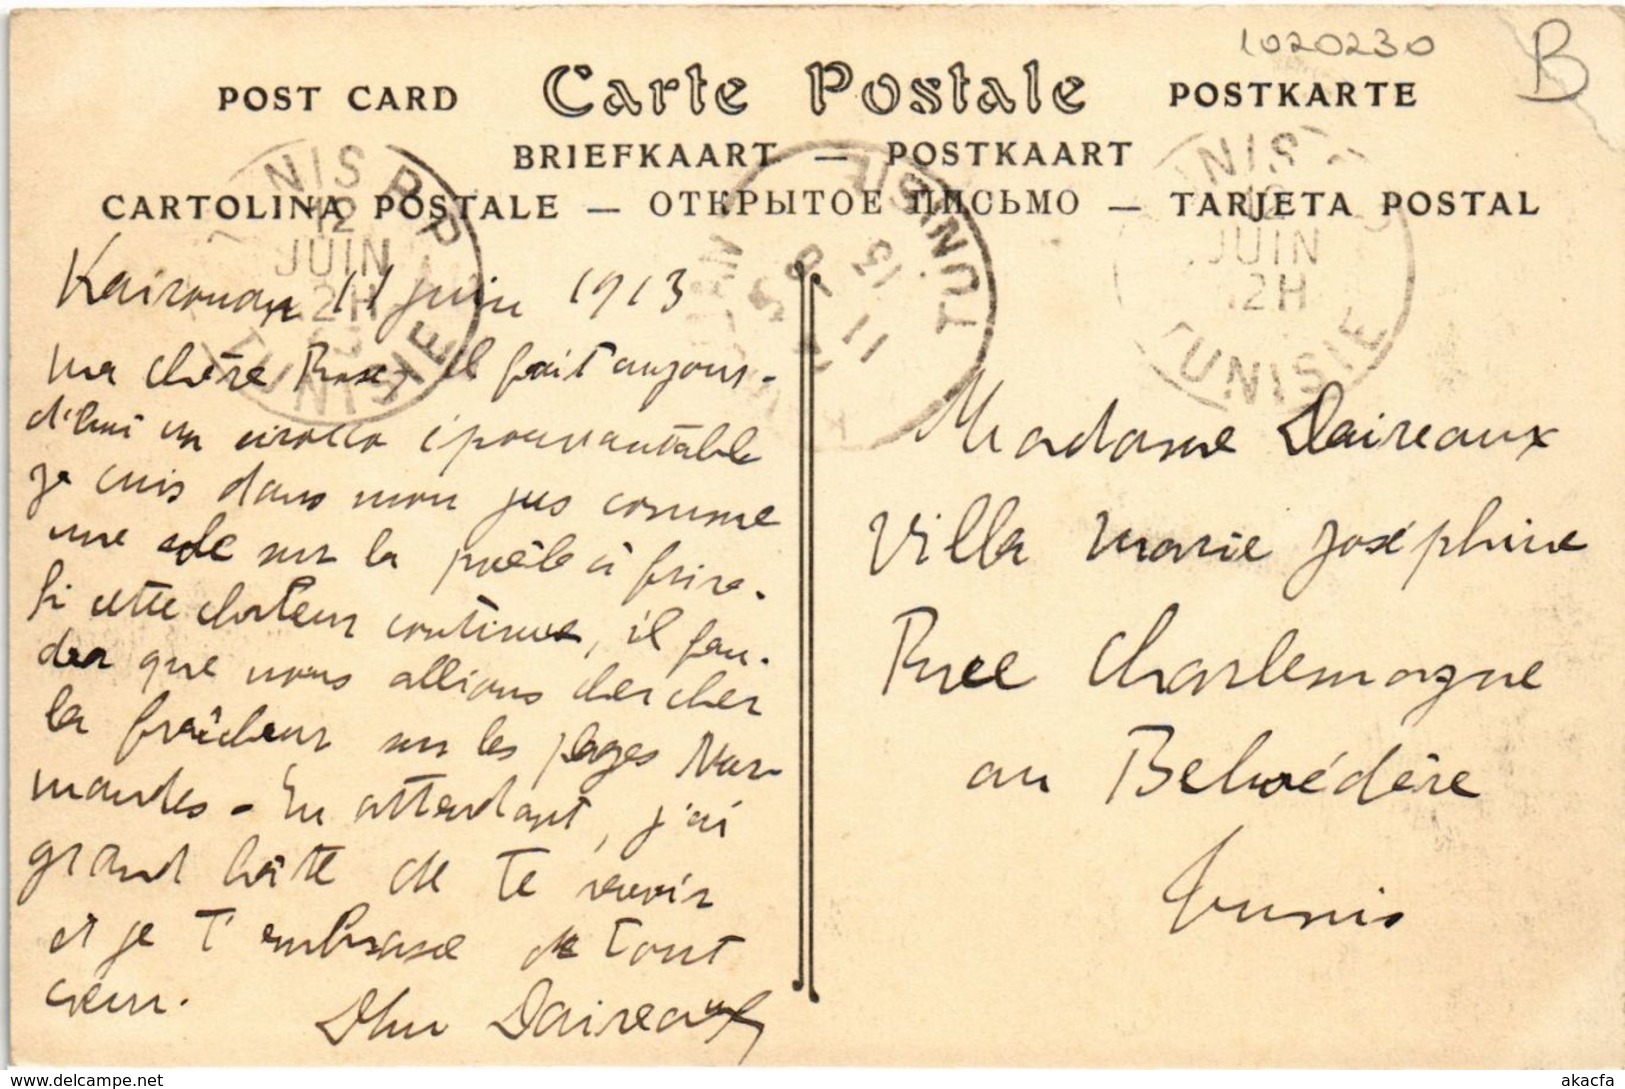 1020230
B
POST CARD Carte Postale POSTKARTE
BRIEFKAART — POSTKAART
CARTOLINA POSTALE — ОТКРЫТОЕ ПИСЬМО — TARJETA POSTAL
NIS R.P
12
JUIN
2H
TUNISIE
TUNISIE
11
13
NIS
12
JUIN
12H
TUNISIE
Kairouan 11 juin 1913
Ma chère Rose, il fait aujour-
d'hui un sirocco épouvantable
je cuis dans mon jus comme
une sole sur la poêle à frire.
Si cette chaleur continue, il fau-
dra que nous allions chercher
la fraîcheur sur les plages Nor-
mandes - En attendant, j'ai
grand hâte de te revoir
et je t'embrasse de tout
cœur.
Daireaux
Madame Daireaux
Villa Marie Joséphine
Rue Charlemagne
au Belvédère
Tunis
akacfa